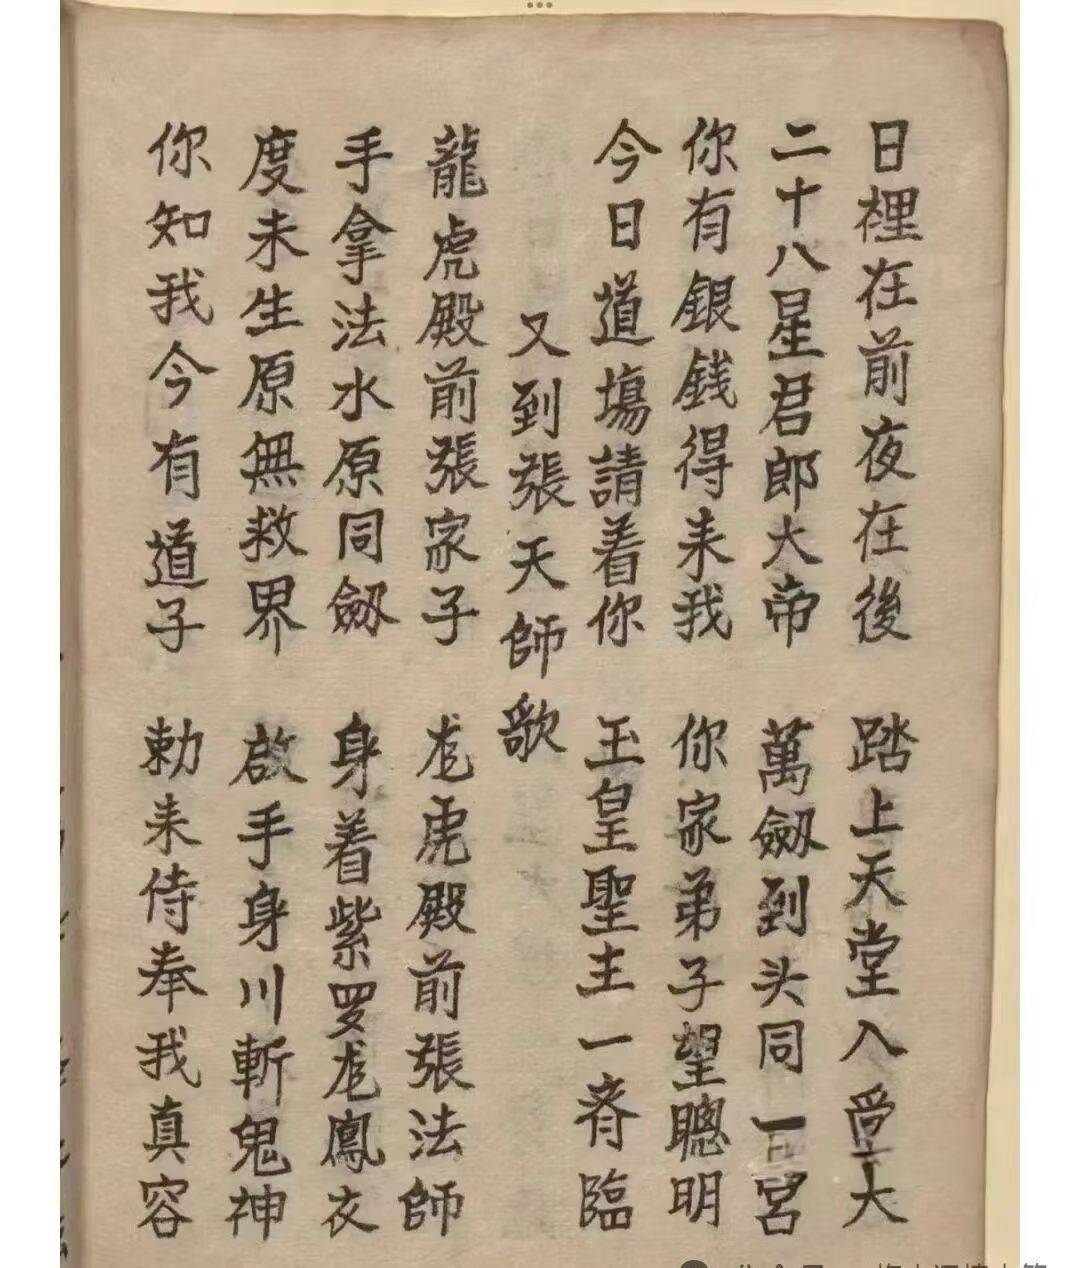 日裡在前夜在後 踏上天堂入受大
二十八星君郎大帝 萬劔到头同一宮
你有銀銭得来我 你家弟子望聰明
今日道塲請着你 玉皇聖主一齊臨
又到張天師歌
龍虎殿前張家子 龙虎殿前張法師
手拿法水原同劔 身着紫罗龙鳳衣
度未生原無救界 啟手身川斬鬼神
你知我今有道子 勅来侍奉我真容